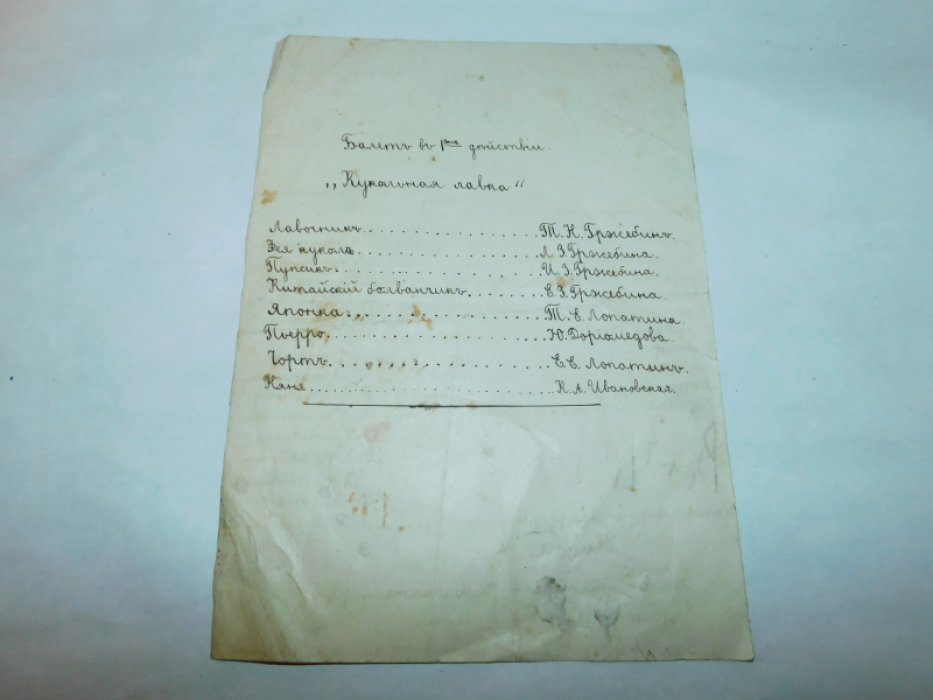 Балетъ въ 1омъ дѣйствіи.
„Кукольная лавка“
Лавочникъ. . . . . . . . . . . . . . . . . Т. Н. Гржебинъ.
Фея куколъ. . . . . . . . . . . . . . . . . Л. З. Гржебина.
Пупсикъ. . . . . . . . . . . . . . . . . И. З. Гржебина.
Китайскій болванчикъ. . . . . . . . Е. З. Гржебина.
Японка. . . . . . . . . . . . . . . . . Т. Е. Лопатина.
Пьерро. . . . . . . . . . . . . . . . . Ю. Доріомедова.
Чортъ. . . . . . . . . . . . . . . . . Е. Е. Лопатинъ.
Няня. . . . . . . . . . . . . . . . . К. А. Ивановская.